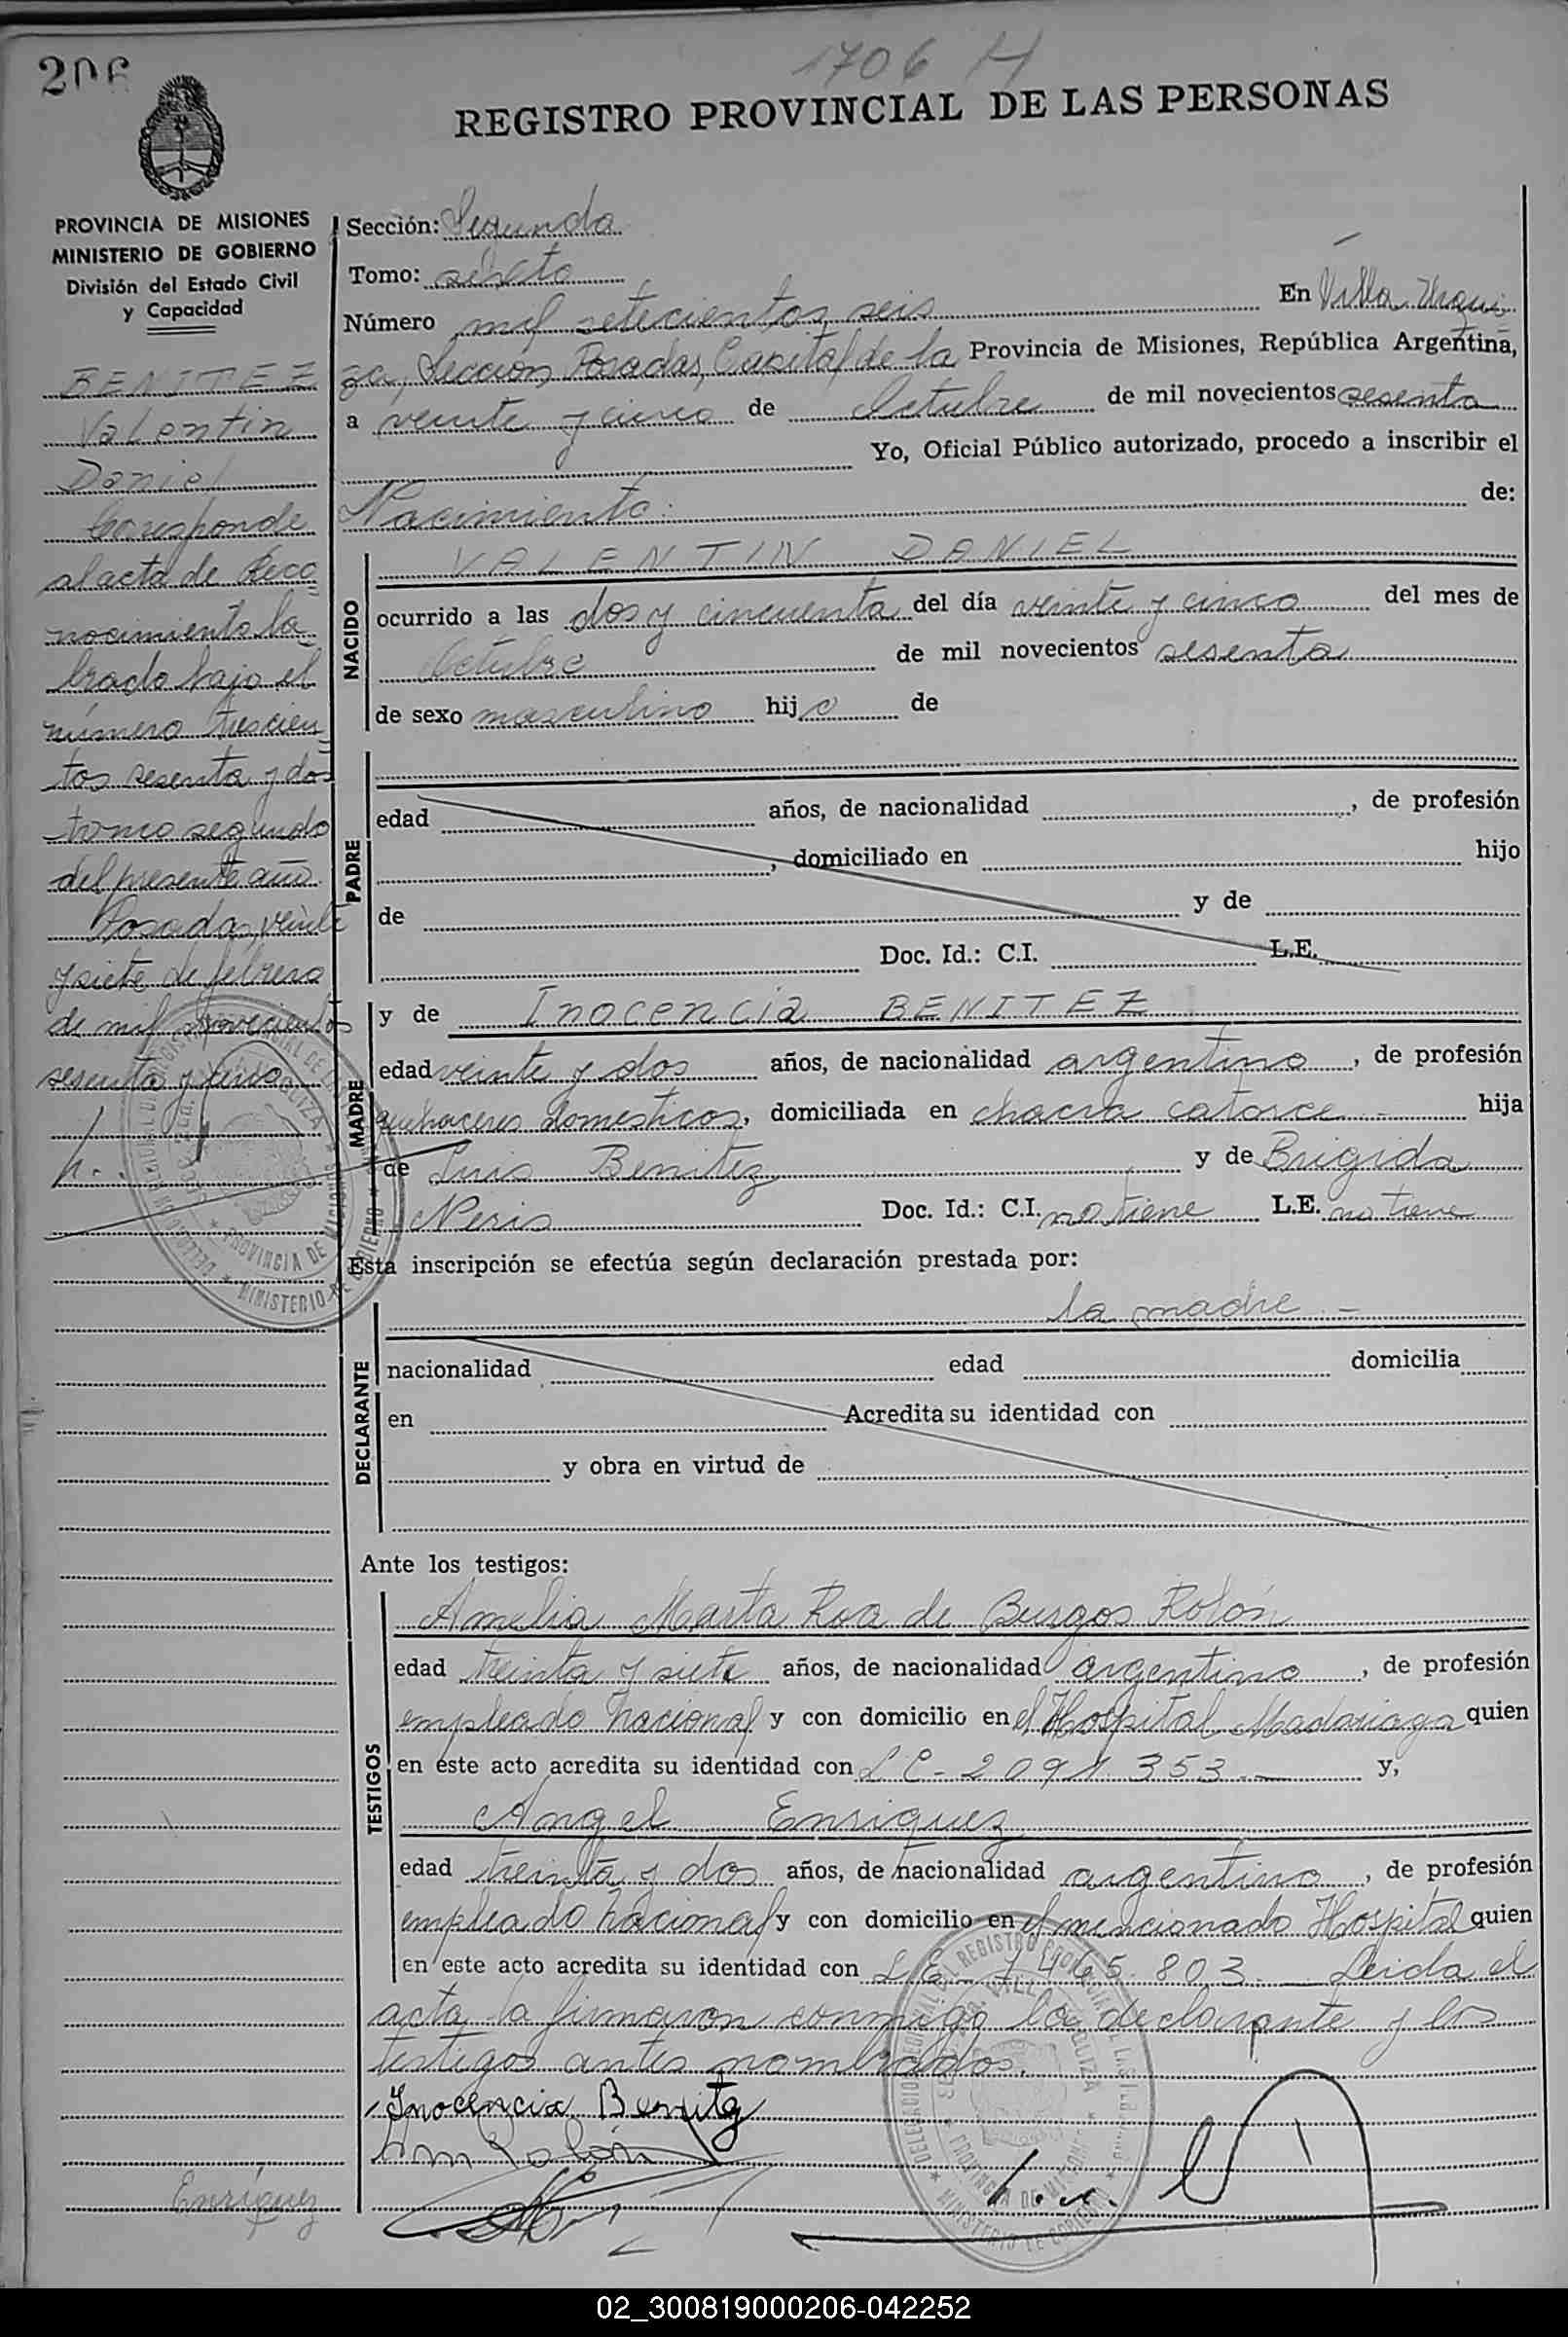 206
1706 H
REGISTRO PROVINCIAL DE LAS PERSONAS
PROVINCIA DE MISIONES
MINISTERIO DE GOBIERNO
División del Estado Civil
y Capacidad
BENITEZ
Valentin
Daniel
Corresponde
al acta de Reco
nocimiento la
brado bajo el
número trescien
tos sesenta y dos
tomo segundo
del presente año.
Posadas, veinte
y siete de febrero
de mil novecientos
sesenta y uno
Sección: Segunda
Tomo: sexto
Número mil setecientos seis En Villa Urqui
za, Sección Posadas, Capital de la Provincia de Misiones, República Argentina,
a veinte y cinco de Octubre de mil novecientos sesenta
Yo, Oficial Público autorizado, procedo a inscribir el
Nacimiento. de:
NACIDO
VALENTIN DANIEL
ocurrido a las dos y cincuenta del día veinte y cinco del mes de
Octubre de mil novecientos sesenta
de sexo masculino hijo de
PADRE
edad años, de nacionalidad , de profesión
, domiciliado en hijo
de y de
Doc. Id.: C.I. L.E.
MADRE
y de Inocencia BENITEZ
edad veinte y dos años, de nacionalidad argentina, de profesión
quehaceres domesticos, domiciliada en chacra catorce - hija
de Luis Benitez y de Brigida
Neris Doc. Id.: C.I. no tiene L.E. no tiene
Esta inscripción se efectúa según declaración prestada por:
la madre -
DECLARANTE
nacionalidad edad domicilia
en Acredita su identidad con
y obra en virtud de
Ante los testigos:
TESTIGOS
Amelia Marta Roa de Burgos Rolón
edad treinta y siete años, de nacionalidad argentina, de profesión
empleado nacional y con domicilio en el Hospital Madariaga quien
en este acto acredita su identidad con L C - 2091353 - y,
Angel Enriquez
edad treinta y dos años, de nacionalidad argentino, de profesión
empleado nacional y con domicilio en el mencionado Hospital quien
en este acto acredita su identidad con L E - 7.465.803. - Leída el
acta la firmaron conmigo la declarante y los
testigos antes nombrados.
Inocencia Benitez
Enriquez
PROVINCIA DE MISIONES
MINISTERIO DE GOBIERNO
02_300819000206-042252